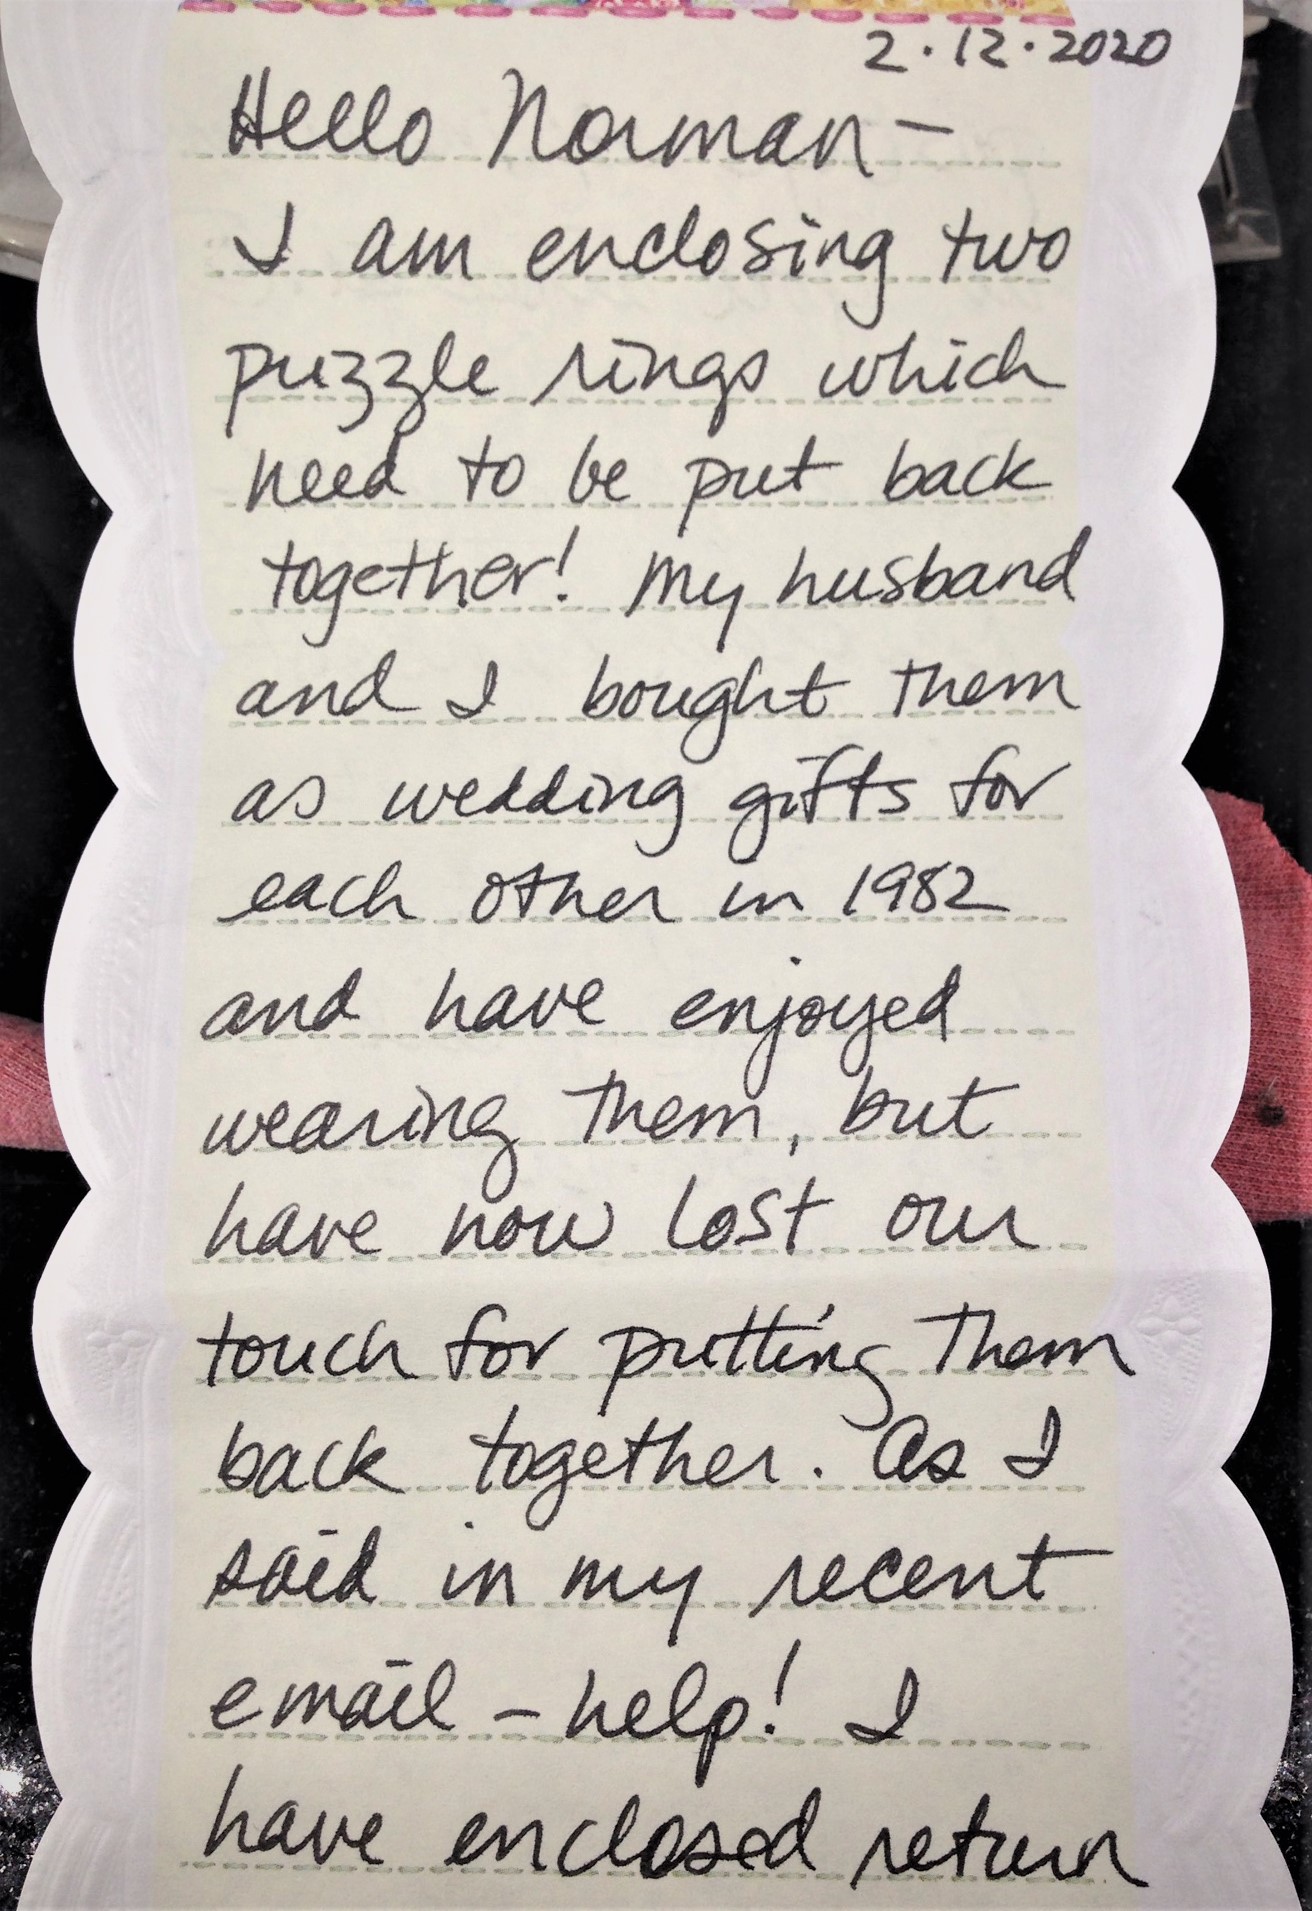 2.12.2020
Hello Norman-
I am enclosing two
puzzle rings which
need to be put back
together! My husband
and I bought them
as wedding gifts for
each other in 1982
and have enjoyed
wearing them, but
have now lost our
touch for putting them
back together. As I
said in my recent
email - help! I
have enclosed return